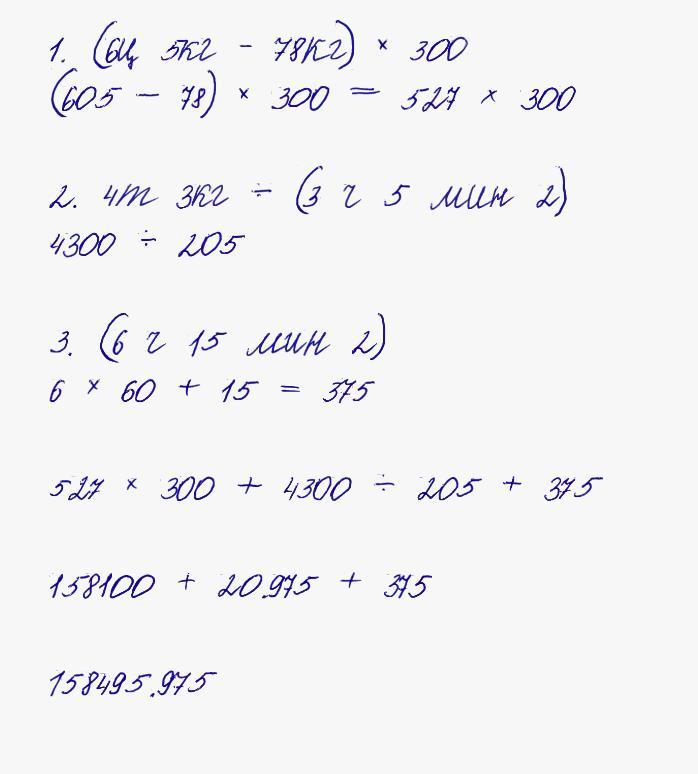 1. (6ц 5кг - 78кг) × 300
(605 - 78) × 300 = 527 × 300
2. 4т 3кг ÷ (3 ч 5 мин 2)
4300 ÷ 205
3. (6 ч 15 мин 2)
6 × 60 + 15 = 375
527 × 300 + 4300 ÷ 205 + 375
158100 + 20.975 + 375
158495.975